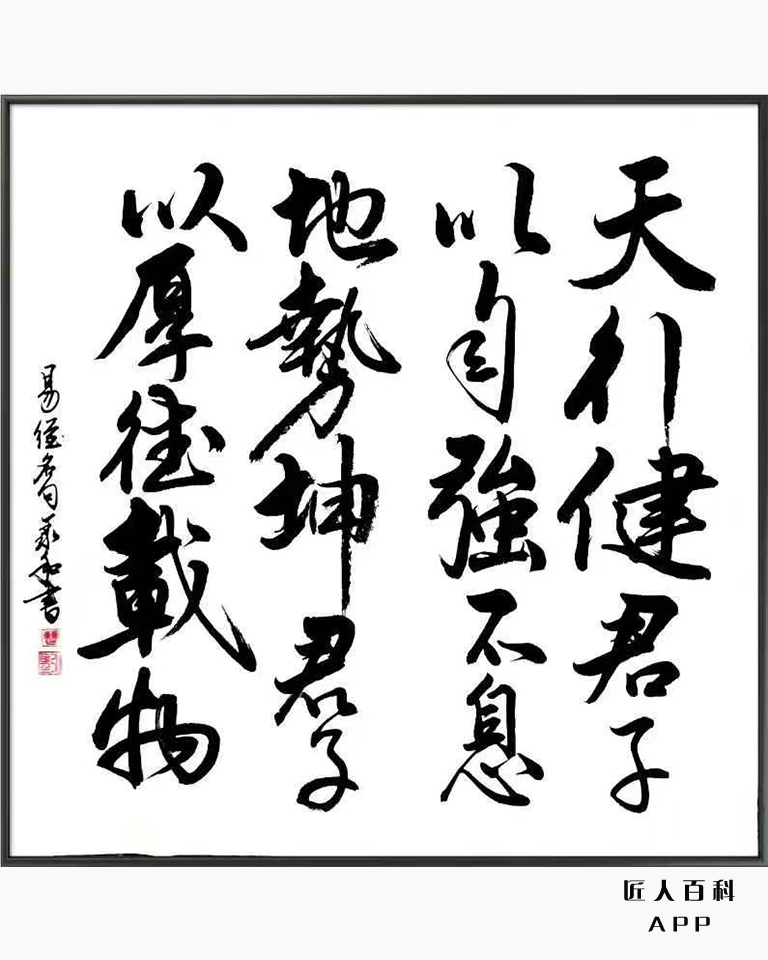 天行健君子
以自強不息
地勢坤君子
以厚德載物
易經名句義和書
匠人百科
APP